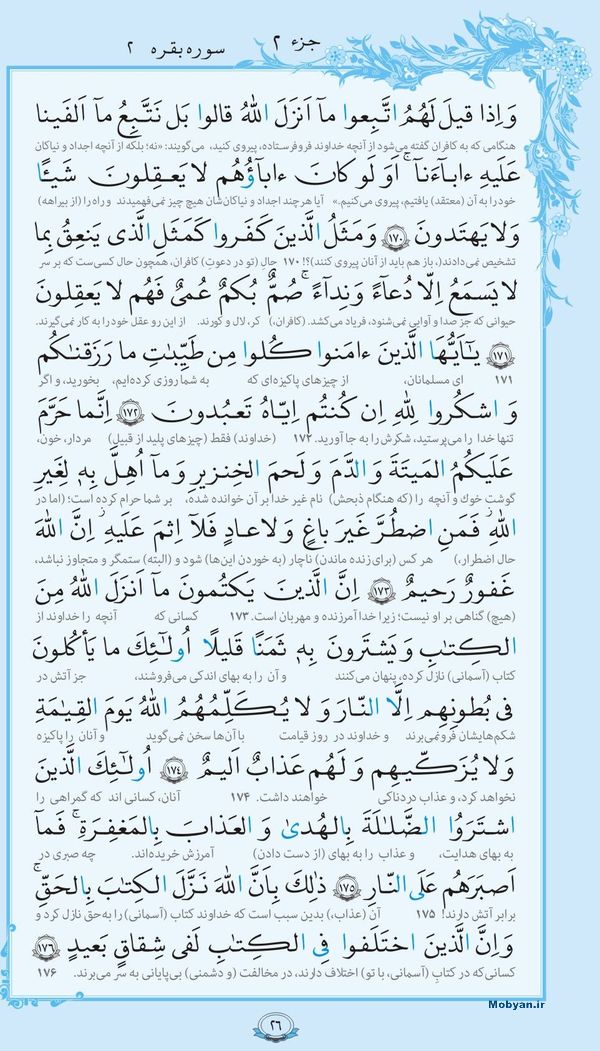 جزء ۲
سوره بقره ۲
وَ اِذا قيلَ لَهُمُ اتَّبِعوا ماۤ اَنزَلَ اللهُ قالوا بَل نَتَّبِعُ ماۤ اَلفَينا
هنگامی که به کافران گفته می‌شود از آنچه خداوند فروفرستاده، پیروی کنید، می‌گویند: «نه؛ بلکه از آنچه اجداد و نیاکان
عَلَيهِ ءابآءَنآ ۚ اَوَ لَو كانَ ءابآؤُهُم لا يَعقِلونَ شَيئًا
خود را به آن (معتقد) یافتیم، پیروی می‌کنیم.» آیا هر چند اجداد و نیاکان‌شان هیچ چیز نمی‌فهمیدند و راه را (از بیراهه)
وَلا يَهتَدونَ ﴿۱۷۰﴾ وَ مَثَلُ الَّذينَ كَفَروا كَمَثَلِ الَّذى يَنعِقُ بِما
تشخیص نمی‌دادند(، باز هم باید از آنان پیروی کنند)؟! ۱۷۰ حالِ (تو در دعوتِ) کافران، همچون حال کسی‌ست که بر سر
لا يَسمَعُ اِلّا دُعآءً وَ نِدآءً ۚ صُمٌّ بُكمٌ عُمىٌ فَهُم لا يَعقِلونَ
حیوانی که جز صدا و آوایی نمی‌شنود، فریاد می‌کشد. (کافران،) کر، لال و کورند. از این رو عقل خود را به کار نمی‌گیرند.
﴿۱۷۱﴾ يٰۤاَيُّهَا الَّذينَ ءامَنوا كُلوا مِن طَيِّبٰتِ ما رَزَقنٰكُم
۱۷۱ ای مسلمانان، از چیزهای پاکیزه‌ای که به شما روزی کرده‌ایم، بخورید، و اگر
وَ اشكُروا لِلّهِ اِن كُنتُم اِيّاهُ تَعبُدونَ ﴿۱۷۲﴾ اِنَّما حَرَّمَ
تنها خدا را می‌پرستید، شکرش را به جا آورید. ۱۷۲ (خداوند) فقط (چیزهای پلید از قبیل) مردار، خون،
عَلَيكُمُ المَيتَةَ وَ الدَّمَ وَ لَحمَ الخِنزيرِ وَ ماۤ اُهِلَّ بِهٖ لِغَيرِ
گوشت خوک و آنچه را (که هنگام ذبحش) نام غیر خدا بر آن خوانده شده، بر شما حرام کرده است؛ (اما در
اللهِ ۖ فَمَنِ اضطُرَّ غَيرَ باغٍ وَ لا عادٍ فَلاۤ اِثمَ عَلَيهِ ۚ اِنَّ اللهَ
حال اضطرار،) هر کس (برای زنده ماندن) ناچار (به خوردن این‌ها) شود و (البته) ستمگر و متجاوز نباشد،
غَفورٌ رَحيمٌ ﴿۱۷۳﴾ اِنَّ الَّذينَ يَكتُمونَ ماۤ اَنزَلَ اللهُ مِنَ
(هیچ) گناهی بر او نیست؛ زیرا خدا آمرزنده و مهربان است. ۱۷۳ کسانی که آنچه را خداوند از
الكِتٰبِ وَ يَشتَرونَ بِهٖ ثَمَنًا قَليلًا اُولٰٓئِكَ ما يَأكُلونَ
کتاب (آسمانی) نازل کرده، پنهان می‌کنند و آن را به بهای اندکی می‌فروشند، جز آتش در
فى بُطونِهِم اِلَّا النّارَ وَ لا يُكَلِّمُهُمُ اللهُ يَومَ القِيٰمَةِ
شکم‌هایشان فرو نمی‌برند و خداوند در روز قیامت با آن‌ها سخن نمی‌گوید و آنان را پاکیزه
وَلا يُزَكّيهِم وَ لَهُم عَذابٌ اَليمٌ ﴿۱۷۴﴾ اُولٰٓئِكَ الَّذينَ
نخواهد کرد، و عذاب دردناکی خواهند داشت. ۱۷۴ آنان، کسانی اند که گمراهی را
اشتَرَوُا الضَّلٰلَةَ بِالهُدىٰ وَ العَذابَ بِالمَغفِرَةِ ۚ فَمآ
به بهای هدایت، و عذاب را به بهای (از دست دادن) آمرزش خریده‌اند. چه صبری در
اَصبَرَهُم عَلَى النّارِ ﴿۱۷۵﴾ ذٰلِكَ بِاَنَّ اللهَ نَزَّلَ الكِتٰبَ بِالحَقِّ ۗ
برابر آتش دارند! ۱۷۵ آن (عذاب،) بدین سبب است که خداوند کتاب (آسمانی) را به‌حق نازل کرد و
وَ اِنَّ الَّذينَ اختَلَفوا فِى الكِتٰبِ لَفى شِقاقٍ بَعيدٍ ﴿۱۷۶﴾
کسانی‌که در کتابِ (آسمانی، با تو) اختلاف دارند، در مخالفت (و دشمنی) بی‌پایانی به سَر می‌برند. ۱۷۶
Mobyan.ir
۲۶